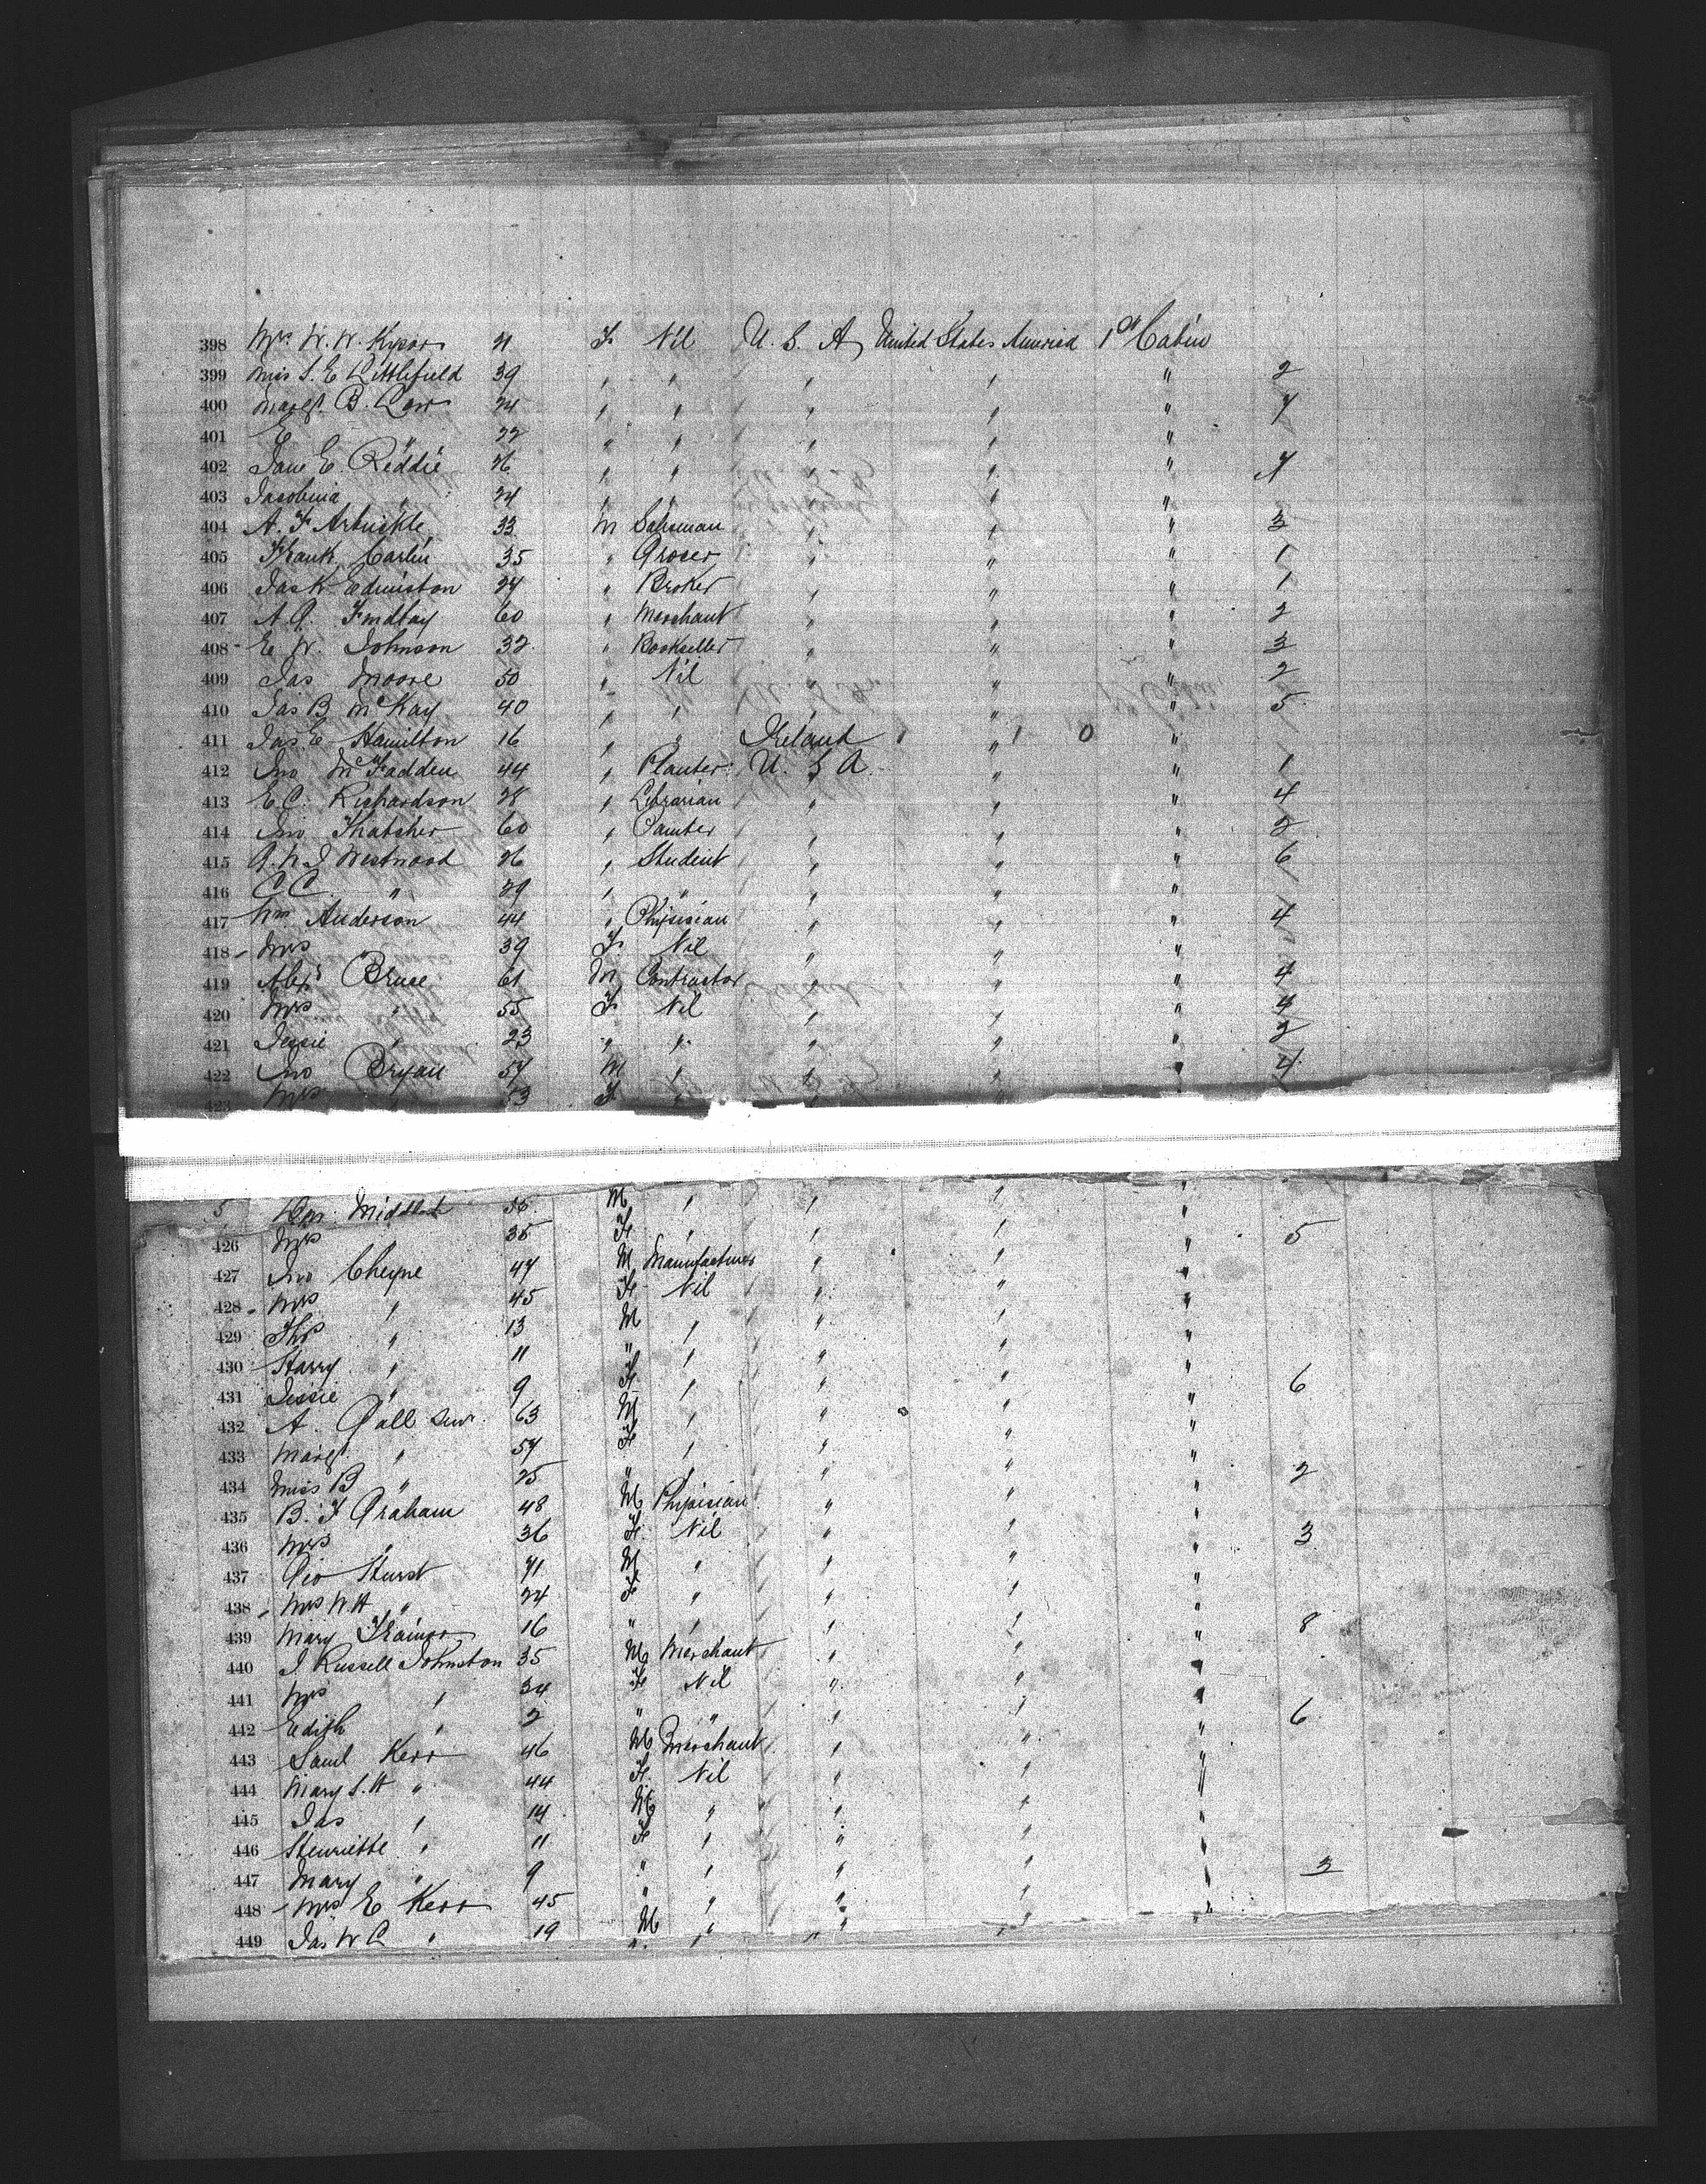 398 Mrs W. W. Kysor 21 F Nil U. S. A United States America 1st Cabin
399 Miss S. E Littlefield 39 " " " " " 2
400 Margt. B. Law 24 " " " " "
401 E " 22 " " " " "
402 Jane E Reddie 26 " " " " "
403 Jacobina " 24 " " " " "
404 A. F Arbuckle 33 M Salesman " " " 3
405 Frank Carlin 35 " Grocer " " " 1
406 Jas K Edmiston 27 " Broker " " " 1
407 A. G. Findlay 60 " Merchant " " " 2
408 E W. Johnson 32 " Bookseller " " " 3
409 Jas Moore 50 " Nil " " " 2
410 Jas B McKay 40 " " " " " 5
411 Jas. E Hamilton 16 " " Ireland " "
412 Jno McFadden 44 " Planter U. S A. " " 1
413 E. C. Richardson 28 " Librarian " " " 4
414 Jno Thatcher 60 " Painter " " " 2
415 G. W. J Westwood 26 " Student " " " 6
416 C C. " 29 " " " " "
417 Wm Anderson 44 " Physician " " " 4
418 Mrs " 39 F Nil " " "
419 Alexr Bruce 61 M Contractor " " " 4
420 Mrs " 55 F Nil " " " 4
421 Jessie " 23 " " " " " 2
422 Jno Bryan 57 M " " " " 4
423 Mrs 53 F " " "
5 M " " " "
426 Mrs 35 F " " " " 5
427 Jno Cheyne 47 M Manufacturer " " "
428 Mrs " 45 F Nil " " "
429 Thos " 13 M " " " "
430 Harry " 11 " " " " "
431 Jessie " 9 F " " " " 6
432 A. Gall Senr. 63 M " " " "
433 Margt. " 57 F " " " "
434 Miss B " 25 " " " " " 2
435 B. F Graham 48 M Physician " " "
436 Mrs " 36 F Nil " " " 3
437 Geo Hurst 71 M " " " "
438 Mrs W. H " 24 F " " " "
439 Mary Trainor 16 " " " " " 8
440 J. Russell Johnston 35 M Merchant " " "
441 Mrs " 34 F Nil " " "
442 Edith " 2 " " " " " 6
443 Saml Kerr 46 M Merchant " " "
444 Mary S. H " 44 F Nil " " "
445 Jas " 14 M " " " "
446 Henriette " 11 F " " " "
447 Mary " 9 " " " " " 3
448 Mrs E Kerr 45 " " " " "
449 Jas W C " 19 M " " " "